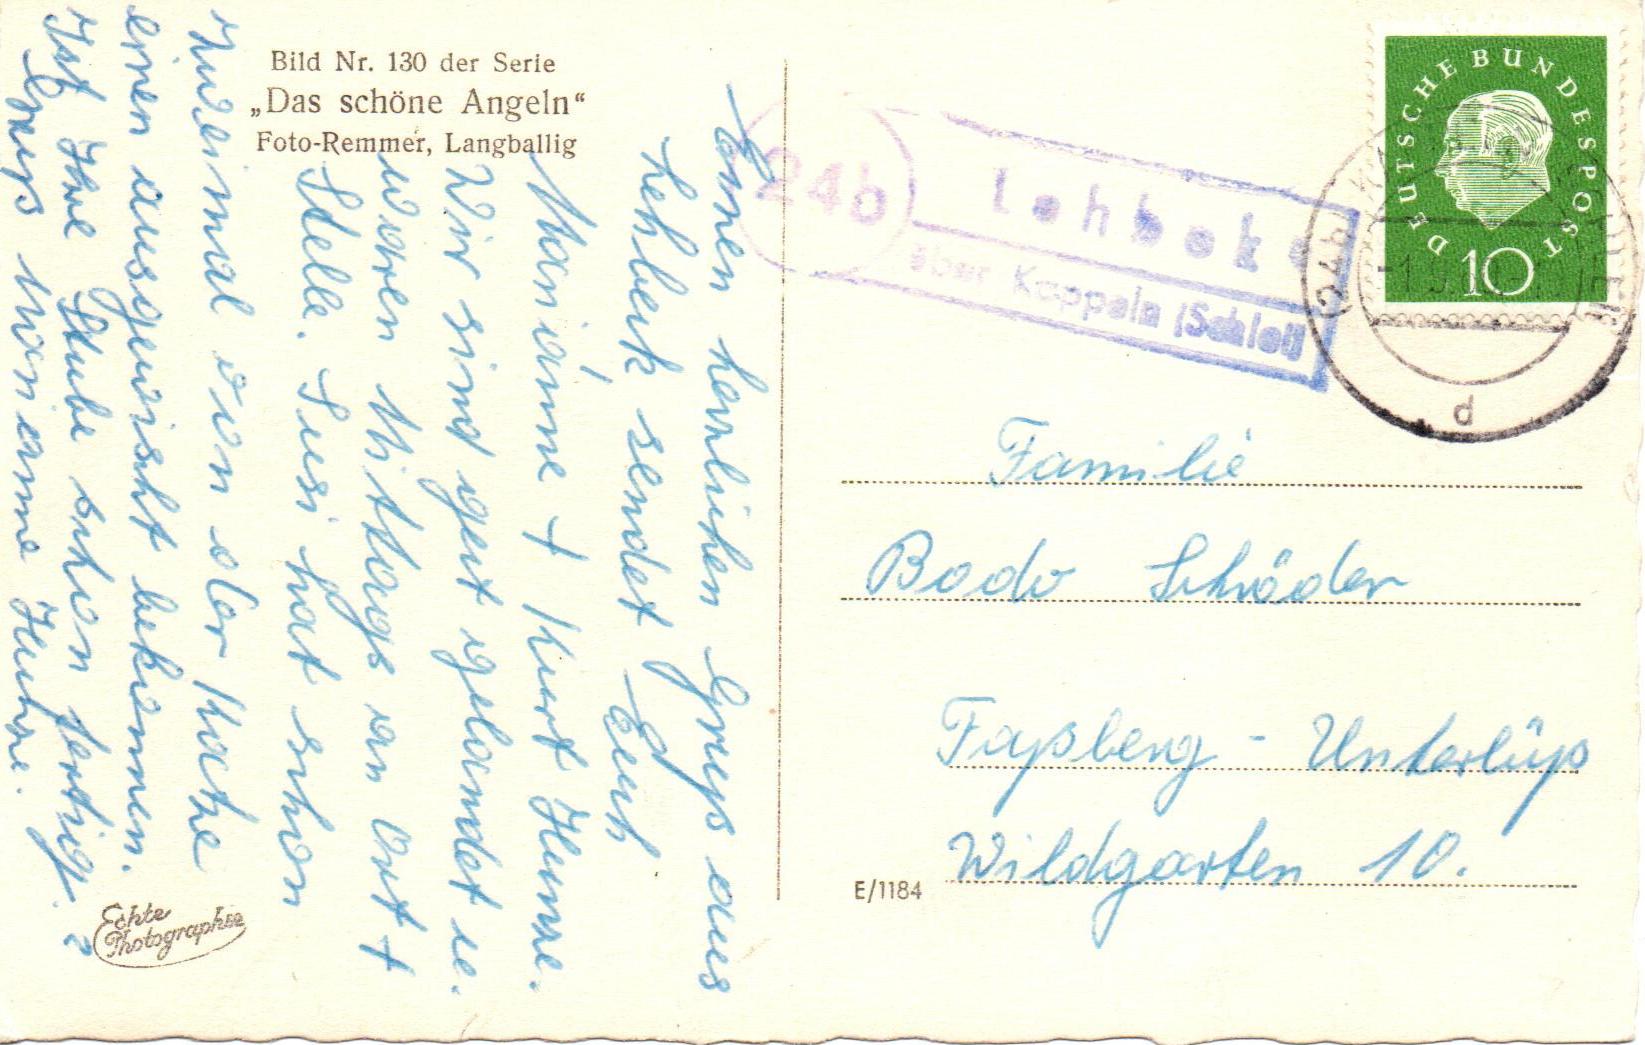 Bild Nr. 130 der Serie
„Das schöne Angeln“
Foto-Remmer, Langballig
Einen herzlichen Gruß aus
Lehbek sendet Euch
Marianne + Kurt
Wir sind gut gelandet
waren Mittags an Ort +
Stelle. Susi hat schon
zweimal von der Katze
einen ausgewischt bekommen.
Ist Ihre Stube schon fertig?
Gruß Marianne
Echte
Photographie
E/1184
24b
Lehbek
über Kappeln (Schlei)
DEUTSCHE BUNDESPOST
10
d
Familie
Bodo Schröder
Faßberg - Unterlüß
Wildgarten 10.